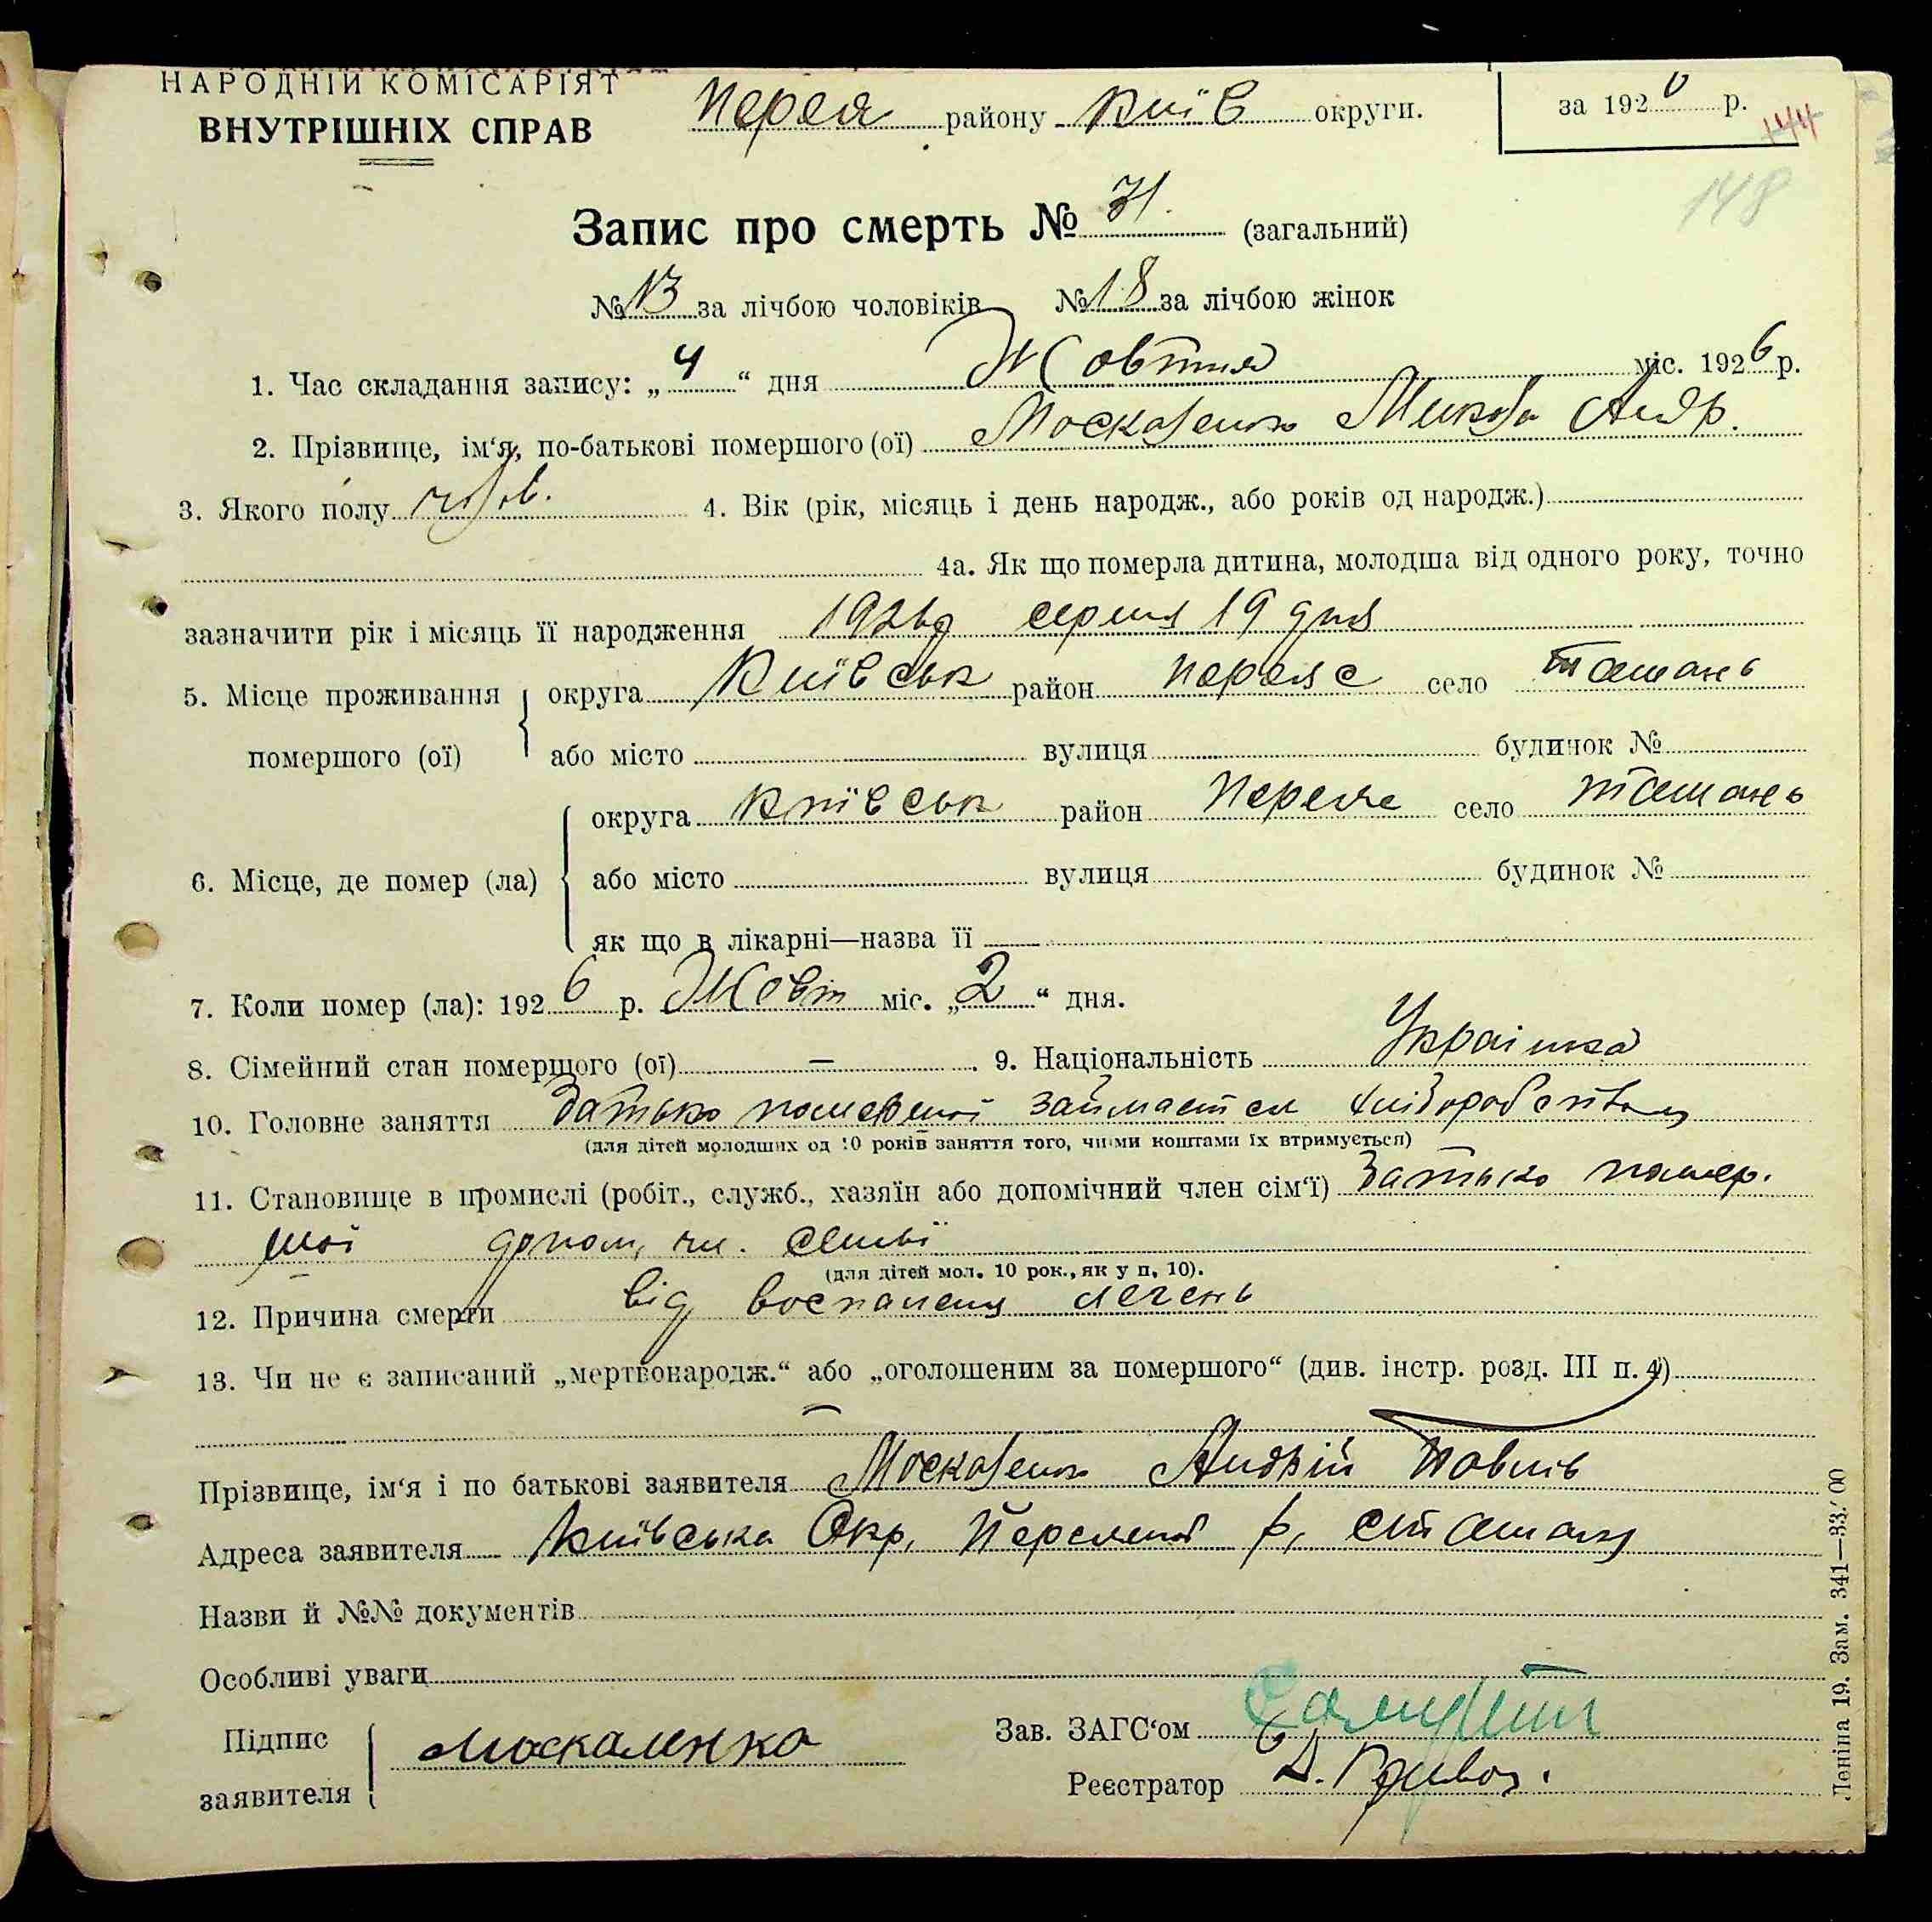 НАРОДНІЙ КОМІСАРІЯТ
ВНУТРІШНІХ СПРАВ
Перея району Київ округи.
за 1926 р.
144
148
Запис про смерть № 31. (загальний)
№ 13 за лічбою чоловіків № 18 за лічбою жінок
1. Час складання запису: „4“ дня Жовтня міс. 1926 р.
2. Прізвище, ім‘я, по-батькові помершого (ої) Москаленко Микола Андр.
3. Якого полу чолов. 4. Вік (рік, місяць і день народж., або років од народж.)
4а. Як що померла дитина, молодша від одного року, точно
зазначити рік і місяць її народження 1926 серпня 19 дня
5. Місце проживання помершого (ої) округа Київськ район Переяс село Ташань
або місто вулиця будинок №
6. Місце, де помер (ла) округа Київськ район Перея село Ташань
або місто вулиця будинок №
як що в лікарні—назва її
7. Коли помер (ла): 1926 р. Жовт міс. „2“ дня.
8. Сімейний стан померщого (ої) — . 9. Національність Українка
10. Головне заняття батько помершої займается хліборобством
(для дітей молодших од 10 років заняття того, чиїми коштами їх втримується)
11. Становище в промислі (робіт., служб., хазяїн або допомічний член сім‘ї) батько помер.
шої допом, чл. семьї
(для дітей мол. 10 рок., як у п. 10).
12. Причина смерти від воспаленя легень
13. Чи не є записаний „мертвонародж.“ або „оголошеним за помершого“ (див. інстр. розд. III п. 4)
—
Прізвище, ім‘я і по батькові заявителя Москаленко Андрій Павлів
Адреса заявителя Київська Окр, р, Ташань
Назви й №№ документів
Особливі уваги
Підпис заявителя Москаленко
Зав. ЗАГС‘ом
Реєстратор Д.
Леніна 19. Зам. 341—33.' 00